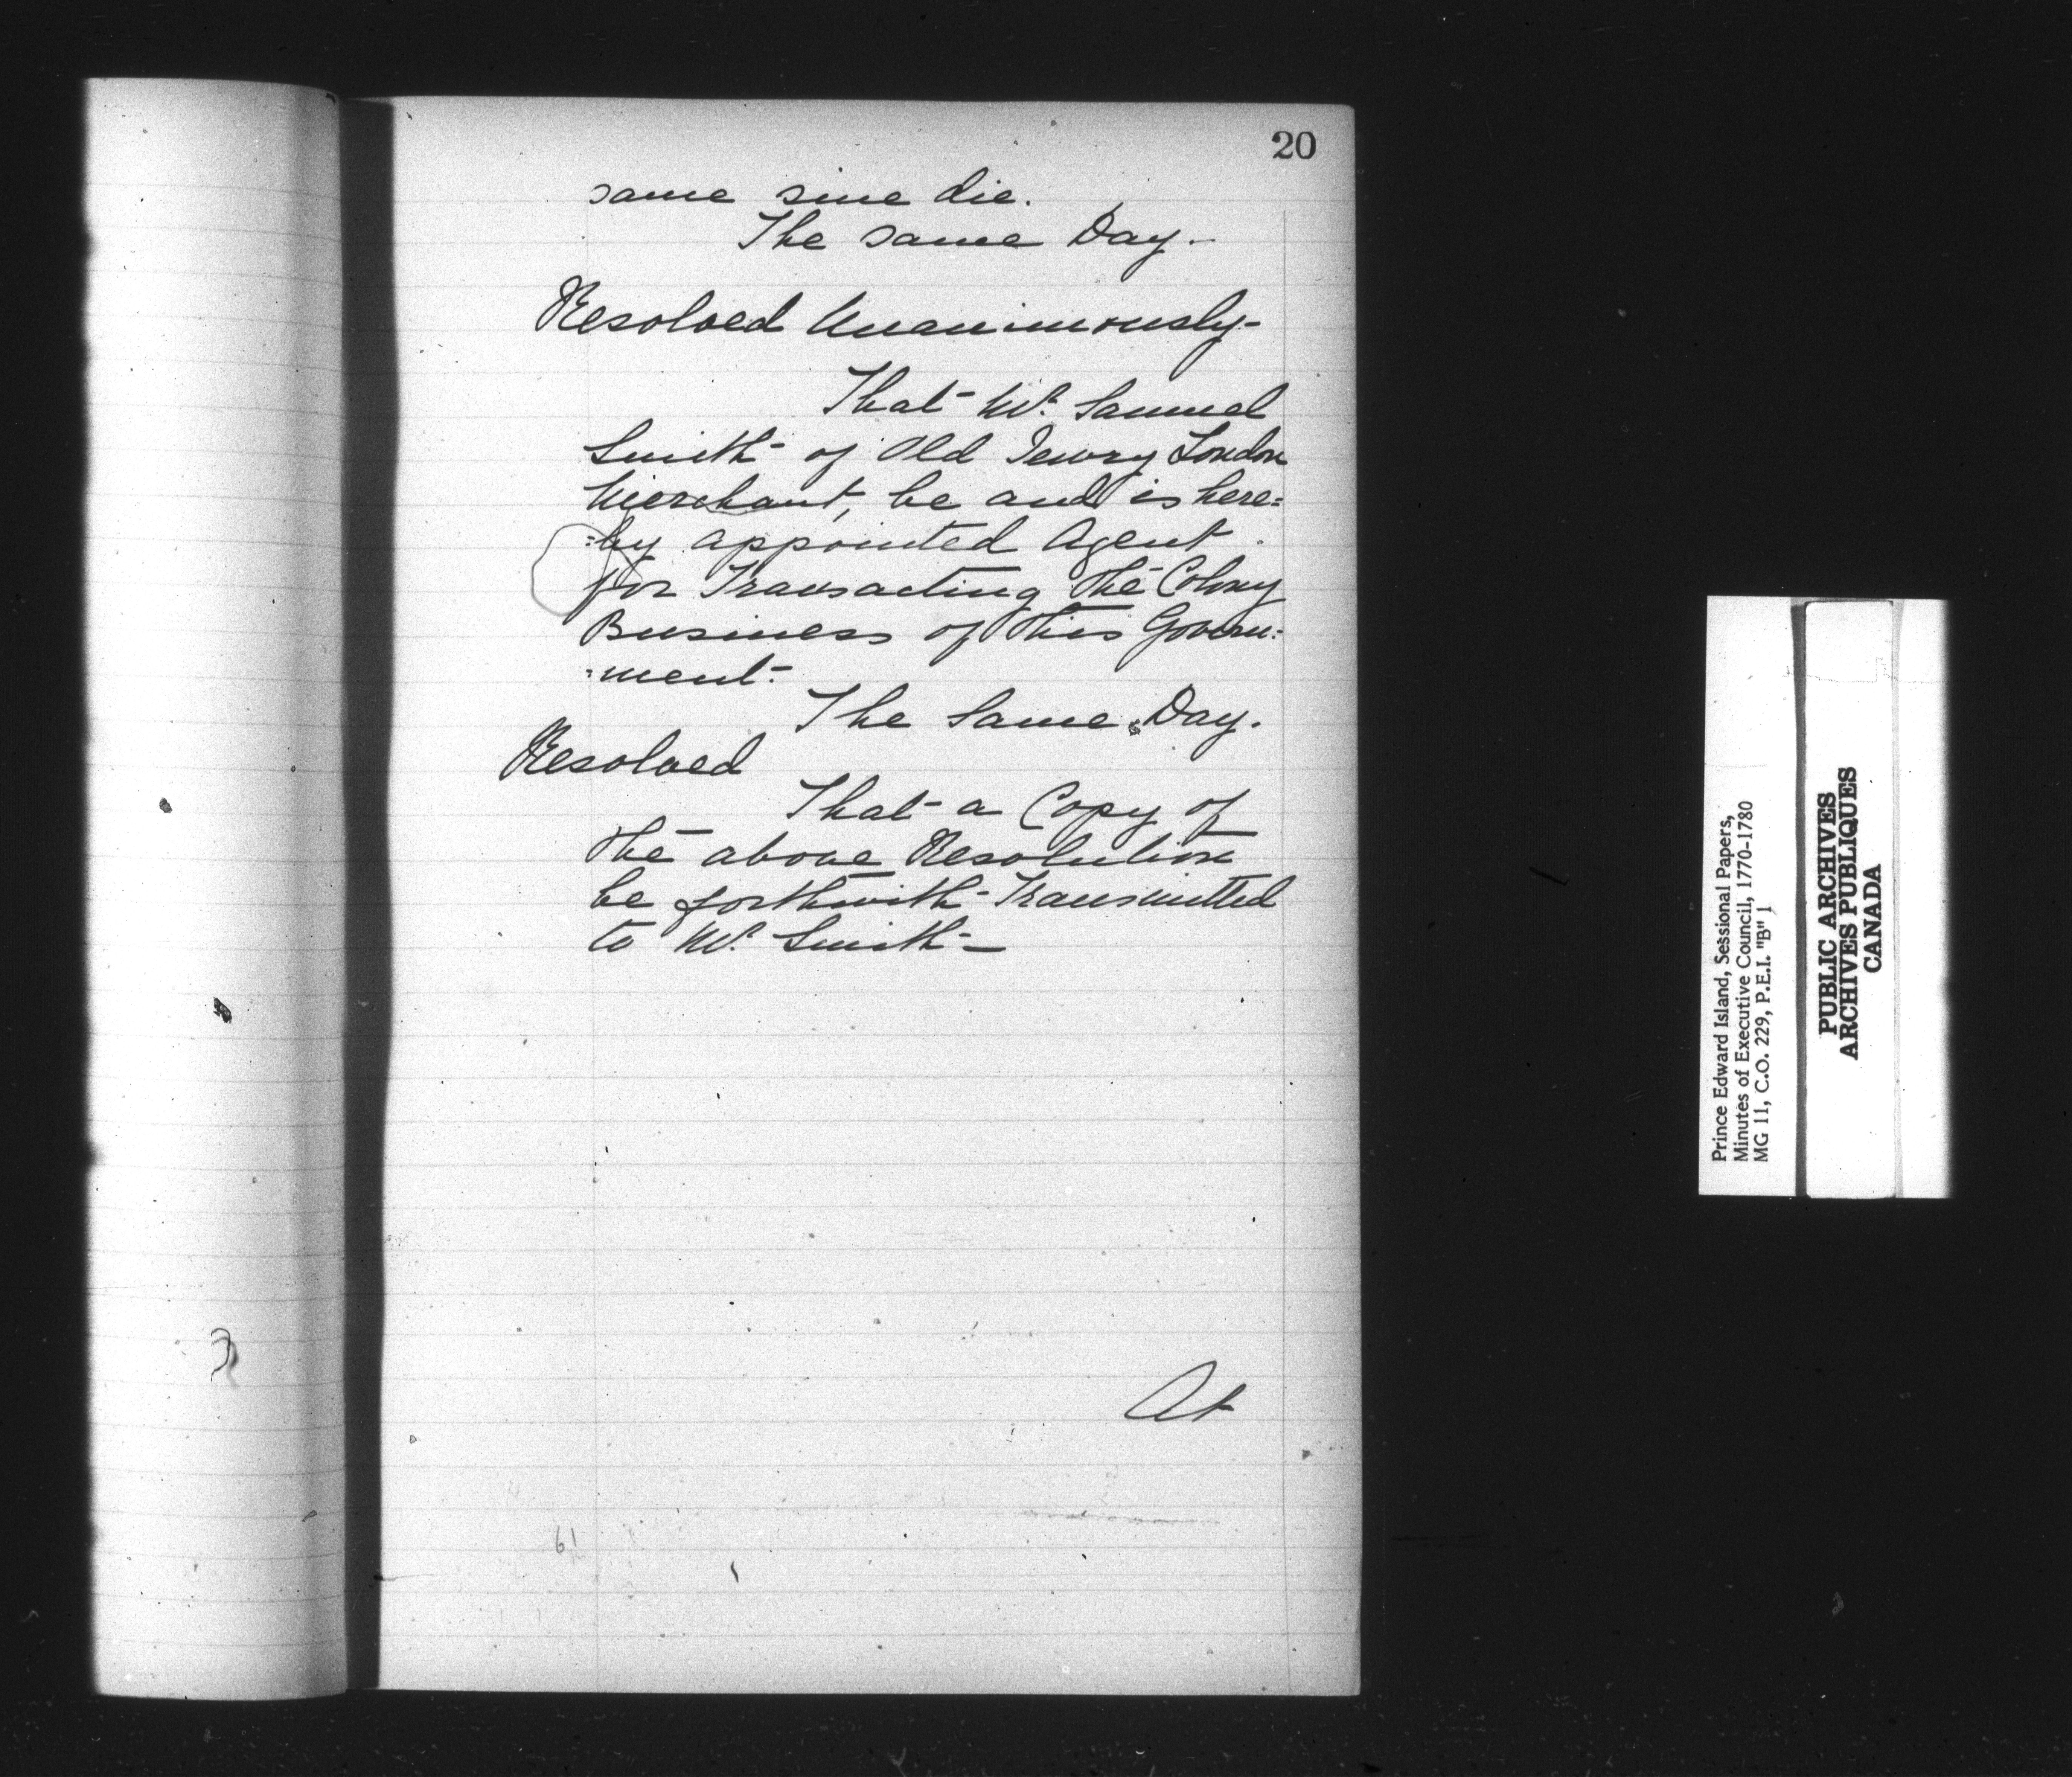 20
same sine die.
The same Day.
Resolved Unanimously-
That Mr. Samuel
Smith of Old Jewry London
Merchant, be and is here=
=by appointed Agent
for Transacting the Colony
Business of this Govern=
=ment.
The Same Day.
Resolved
That a Copy of
the above Resolution
be forthwith Transmitted
to Mr. Smith-
At
61
Prince Edward Island, Sessional Papers,
Minutes of Executive Council, 1770-1780
MG 11, C.O. 229, P.E.I. "B" 1
PUBLIC ARCHIVES
ARCHIVES PUBLIQUES
CANADA